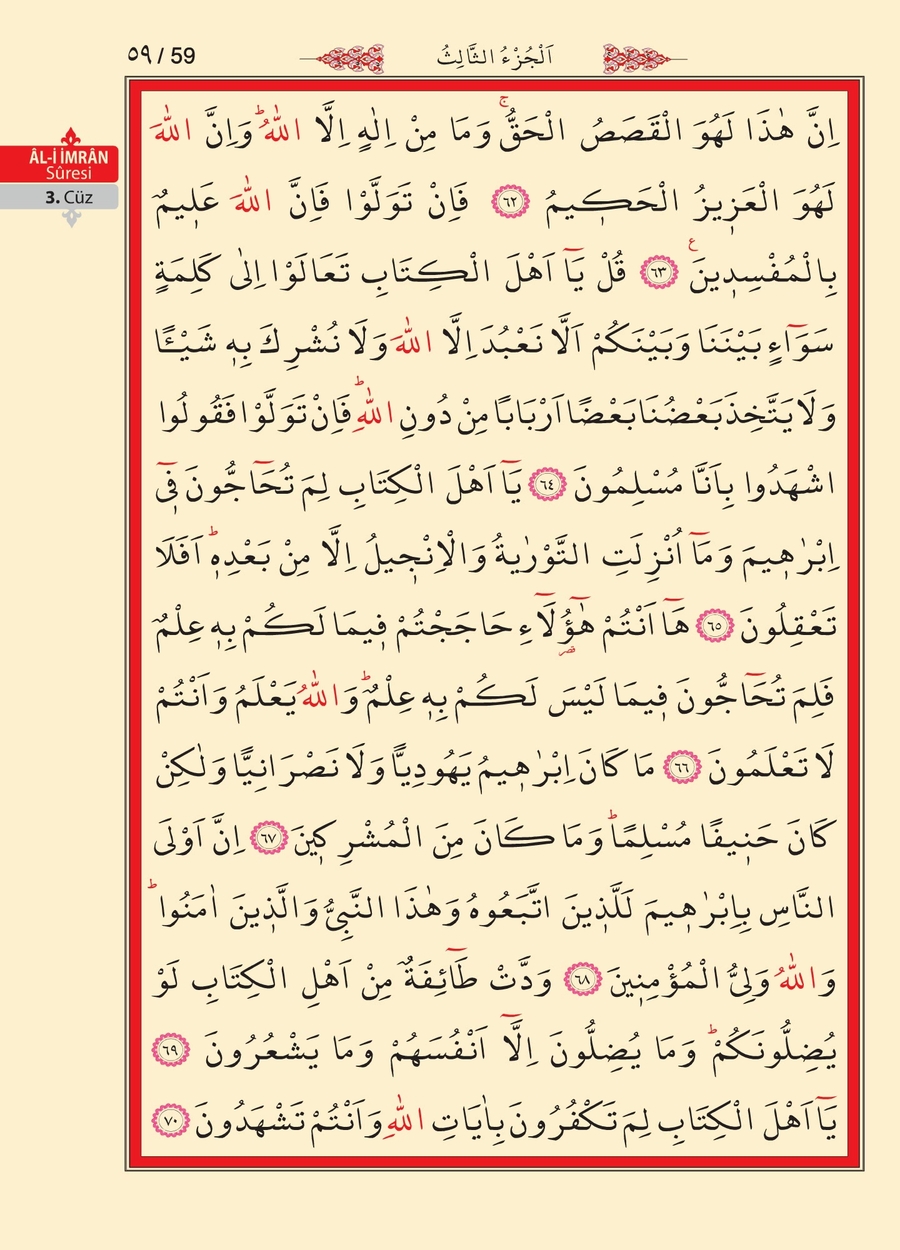 ٥٩ / 59
اَلْجُزْءُ الثَّالِثُ
ÂL-İ İMRÂN
Sûresi
3. Cüz
اِنَّ هٰذَا لَهُوَ الْقَصَصُ الْحَقُّۚ وَمَا مِنْ اِلٰهٍ اِلَّا اللّٰهُؕ وَاِنَّ اللّٰهَ
لَهُوَ الْعَزٖيزُ الْحَكٖيمُ ﴿٦٢﴾ فَاِنْ تَوَلَّوْا فَاِنَّ اللّٰهَ عَلٖيمٌ
بِالْمُفْسِدٖينَࣖ ﴿٦٣﴾ قُلْ يَٓا اَهْلَ الْكِتَابِ تَعَالَوْا اِلٰى كَلِمَةٍ
سَوَٓاءٍ بَيْنَنَا وَبَيْنَكُمْ اَلَّا نَعْبُدَ اِلَّا اللّٰهَ وَلَا نُشْرِكَ بِهٖ شَيْـًٔا
وَلَا يَتَّخِذَ بَعْضُنَا بَعْضًا اَرْبَابًا مِنْ دُونِ اللّٰهِؕ فَاِنْ تَوَلَّوْا فَقُولُوا
اشْهَدُوا بِاَنَّا مُسْلِمُونَ ﴿٦٤﴾ يَٓا اَهْلَ الْكِتَابِ لِمَ تُحَٓاجُّونَ فٖٓي
اِبْرٰهٖيمَ وَمَٓا اُنْزِلَتِ التَّوْرٰيةُ وَالْاِنْجٖيلُ اِلَّا مِنْ بَعْدِهٖؕ اَفَلَا
تَعْقِلُونَ ﴿٦٥﴾ هَٓا اَنْتُمْ هٰٓؤُ۬لَٓاءِ حَاجَجْتُمْ فٖيمَا لَكُمْ بِهٖ عِلْمٌ
فَلِمَ تُحَٓاجُّونَ فٖيمَا لَيْسَ لَكُمْ بِهٖ عِلْمٌؕ وَاللّٰهُ يَعْلَمُ وَاَنْتُمْ
لَا تَعْلَمُونَ ﴿٦٦﴾ مَا كَانَ اِبْرٰهٖيمُ يَهُودِيًّا وَلَا نَصْرَانِيًّا وَلٰكِنْ
كَانَ حَنٖيفًا مُسْلِمًاؕ وَمَا كَانَ مِنَ الْمُشْرِكٖينَ ﴿٦٧﴾ اِنَّ اَوْلَى
النَّاسِ بِاِبْرٰهٖيمَ لَلَّذٖينَ اتَّبَعُوهُ وَهٰذَا النَّبِيُّ وَالَّذٖينَ اٰمَنُواؕ
وَاللّٰهُ وَلِيُّ الْمُؤْمِنٖينَ ﴿٦٨﴾ وَدَّتْ طَٓائِفَةٌ مِنْ اَهْلِ الْكِتَابِ لَوْ
يُضِلُّونَكُمْؕ وَمَا يُضِلُّونَ اِلَّٓا اَنْفُسَهُمْ وَمَا يَشْعُرُونَ ﴿٦٩﴾
يَٓا اَهْلَ الْكِتَابِ لِمَ تَكْفُرُونَ بِاٰيَاتِ اللّٰهِ وَاَنْتُمْ تَشْهَدُونَ ﴿٧٠﴾